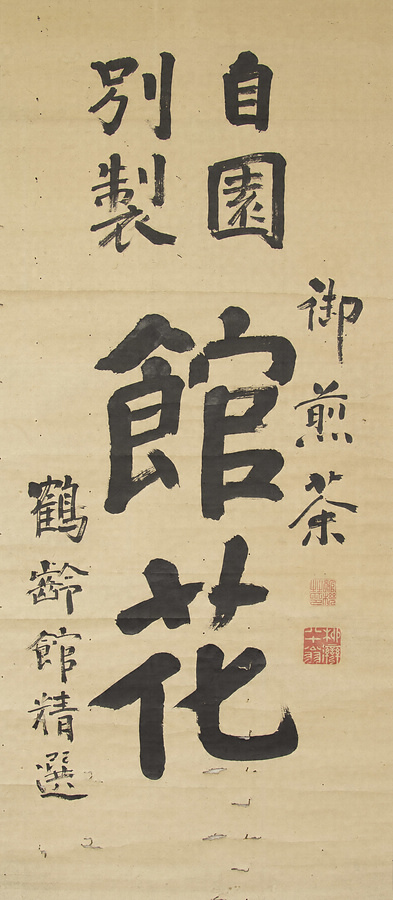 御煎茶
自園
別製
館花
鶴齢館精選